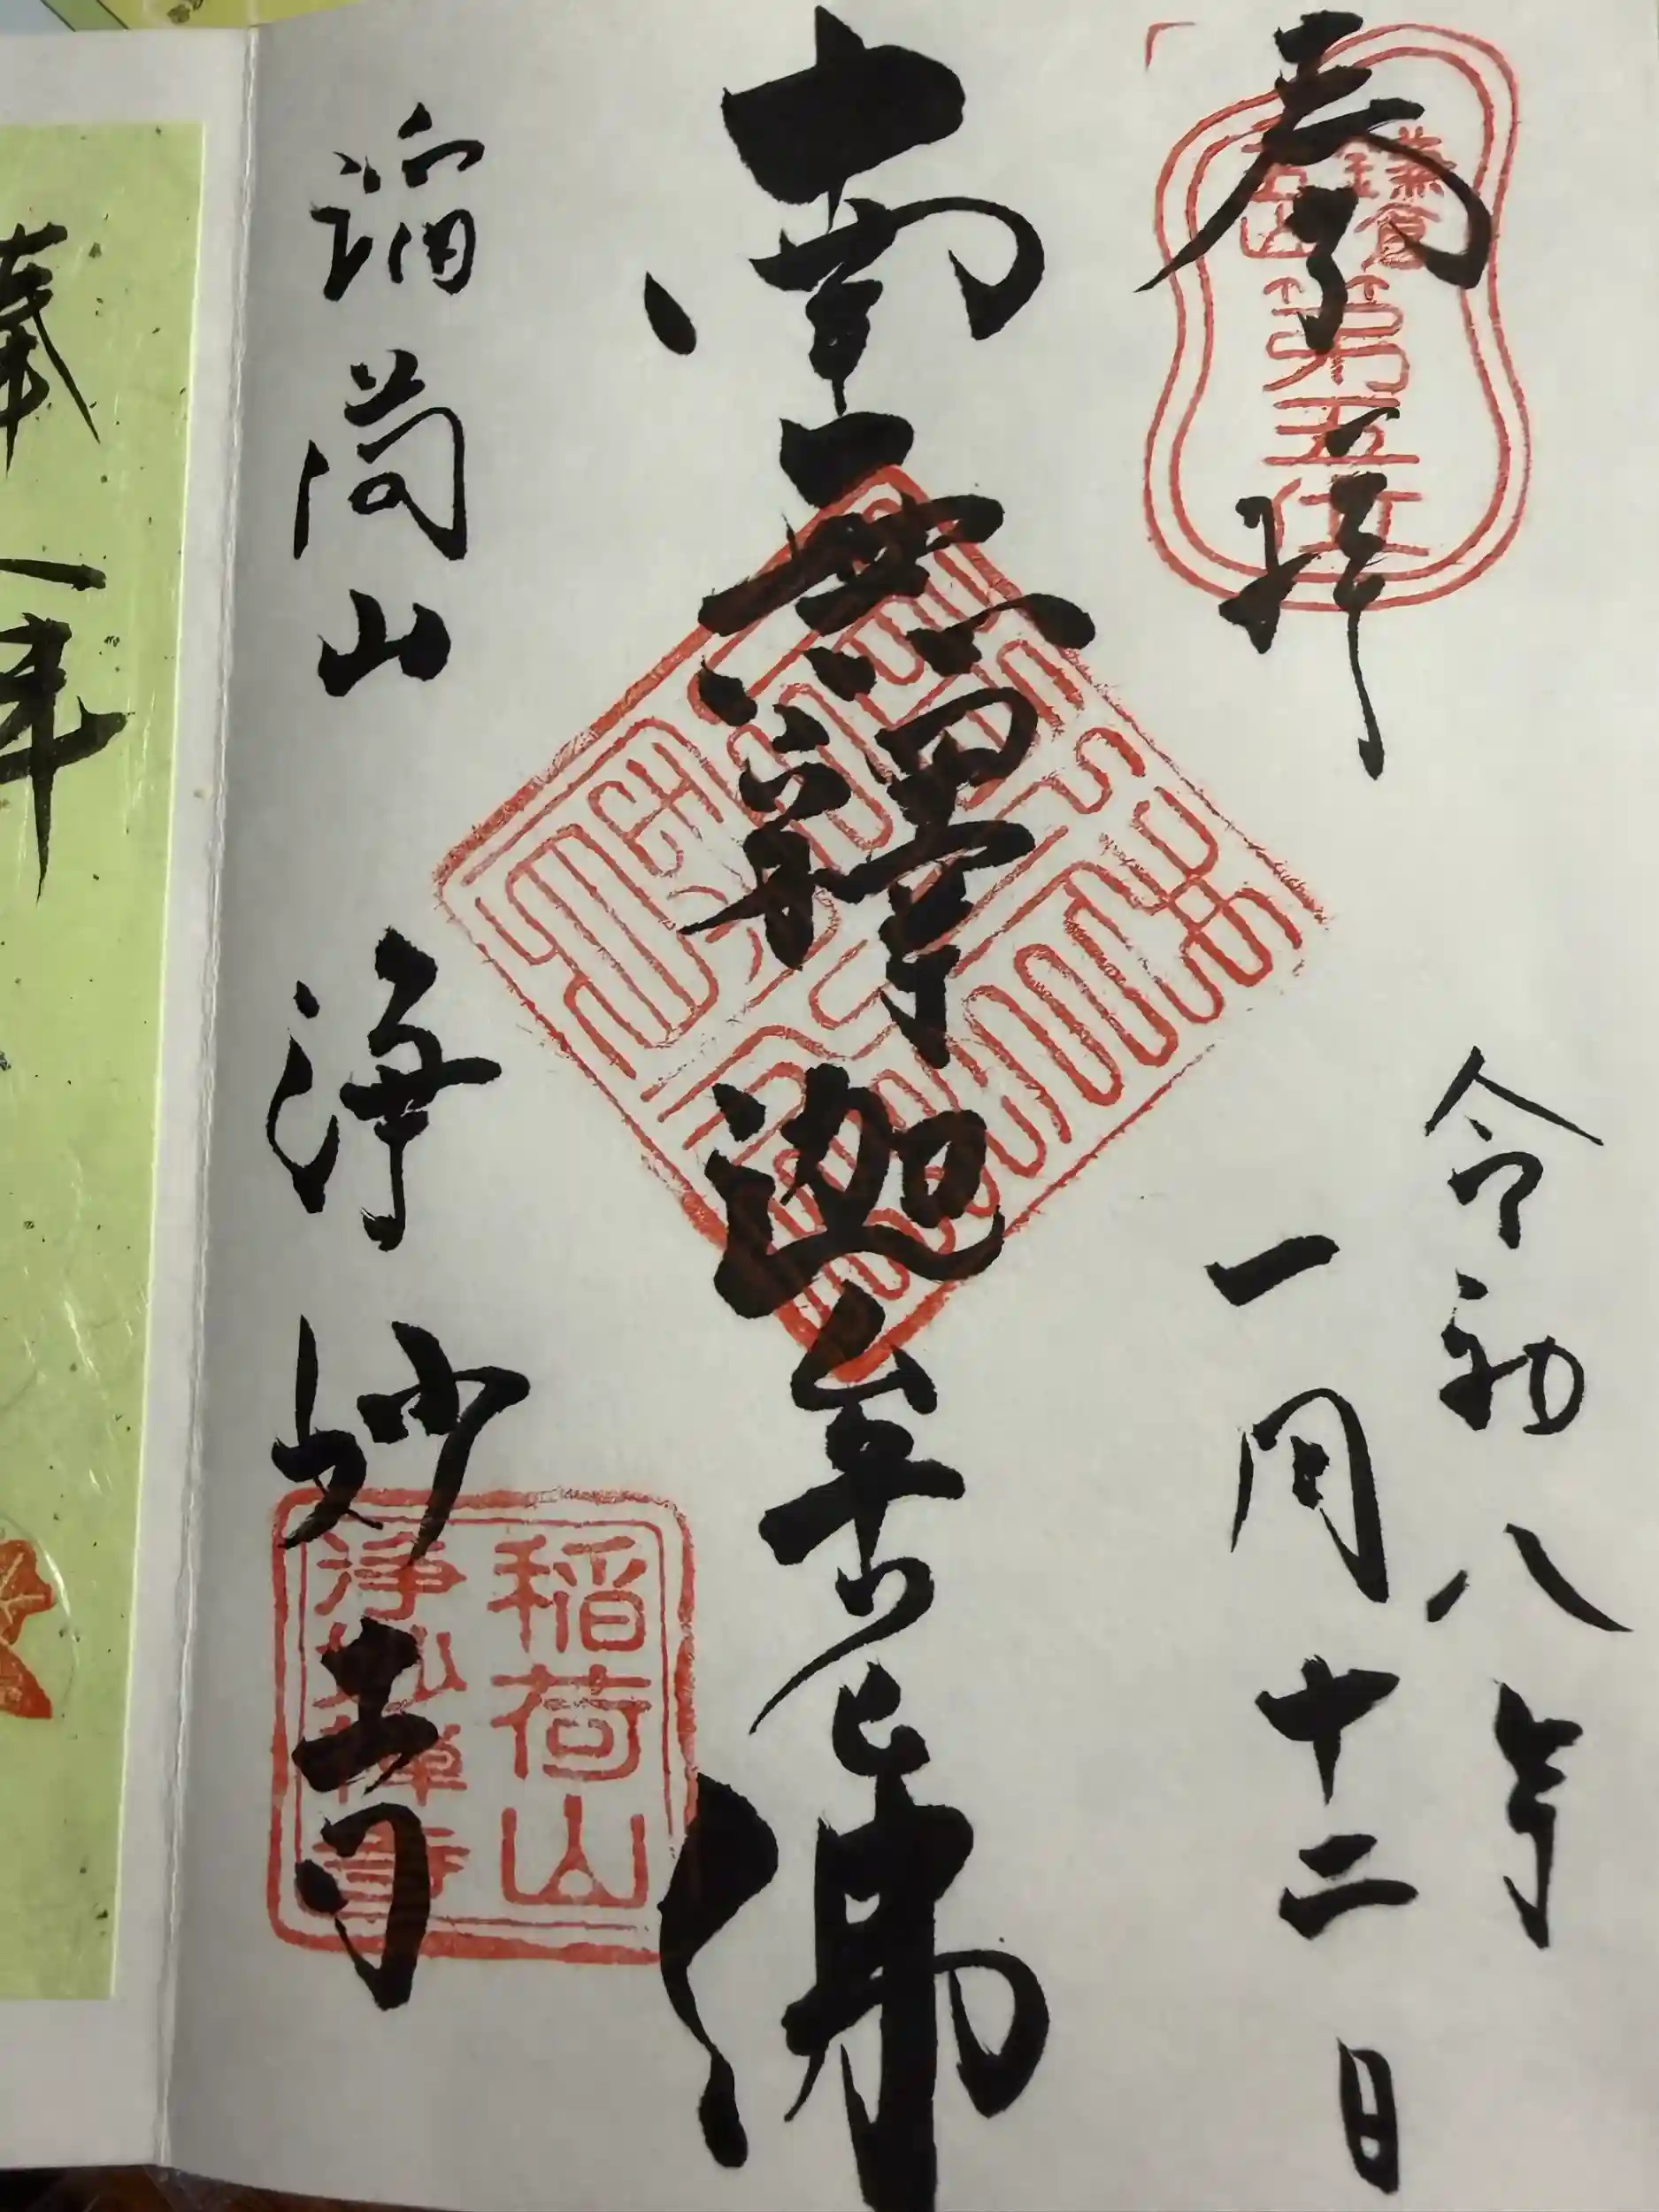 奉拝
鎌倉
五山
第五位
令和八年
一月十二日
南無釋迦牟尼佛
稲荷山 浄妙寺
稲荷山
浄妙禅寺
奉
拝